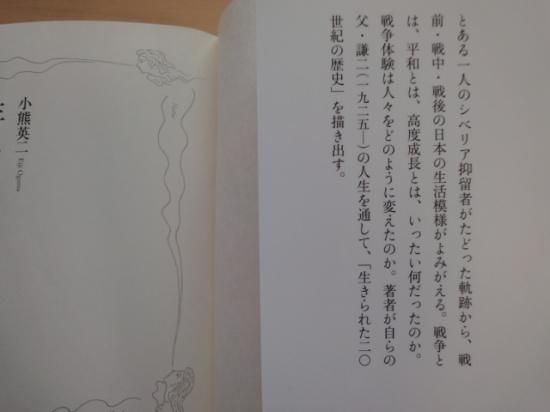 とある一人のシベリア抑留者がたどった軌跡から、戦
前・戦中・戦後の日本の生活模様がよみがえる。戦争と
は、平和とは、高度成長とは、いったい何だったのか。
戦争体験は人々をどのように変えたのか。著者が自らの
父・謙二(一九二五―)の人生を通して、「生きられた二〇
世紀の歴史」を描き出す。
小熊英二
Eiji Oguma